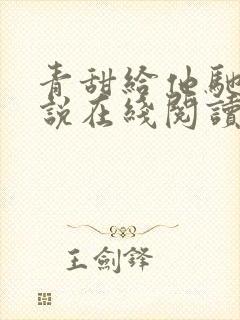 青甜給他馳
說在綫閱讀
王劍鋒